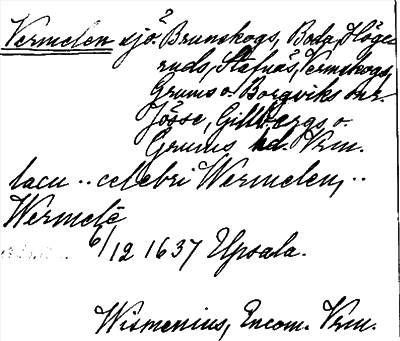 Vermelen sjö. Brunskogs, Boda, Höge
ruds, Stafnäs, Värmskogs,
Grums o. Borgviks snr.
Jösse, Gillbergs o.
Grums hd. Vrm.
lacu .. celebri Wermelen, ..
Wermelẽ
6/12 1637 Upsala.
Wismenius, Encom. Vrm.